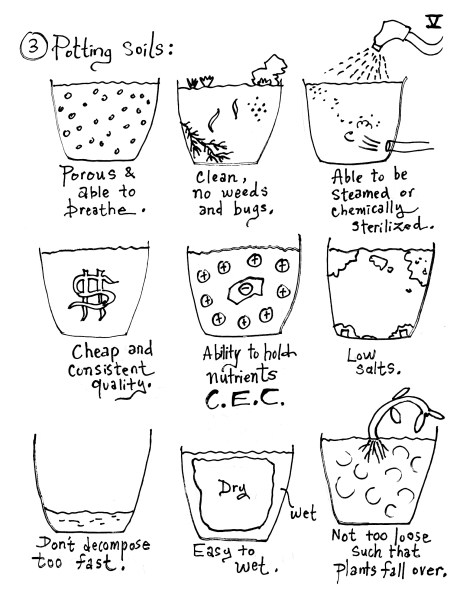 V
③ Potting Soils:
Porous &
able to
breathe.
Clean,
no weeds
and bugs.
Able to be
Steamed or
chemically
sterilized.
$
Cheap and
consistent
quality.
+ + + + + + + + + +
−
Ability to hold
nutrients
C.E.C.
Low
salts.
Dont decompose
too fast.
Dry
wet
Easy to
wet.
Not too loose
Such that
Plants fall over.